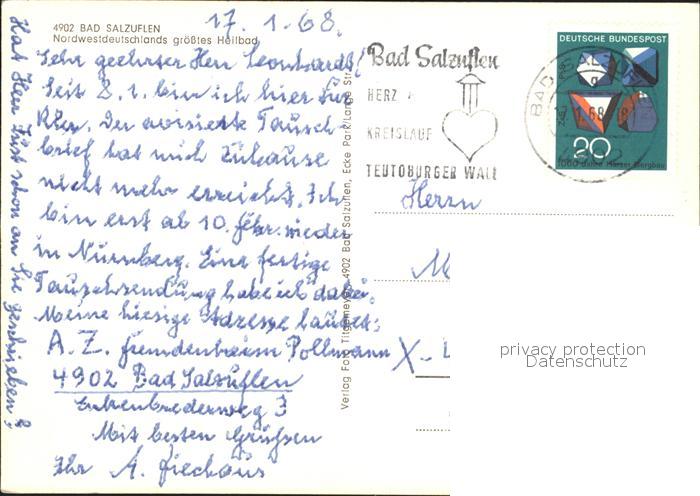 17.1.68.
4902 BAD SALZUFLEN
Nordwestdeutschlands größtes Heilbad
Sehr geehrter Herr Leonhardt!
Seit 2.1. bin ich hier zur
Kur. Der avisierte Tausch-
brief hat mich Zuhause
nicht mehr erreicht. Ich
bin erst ab 10. Febr. wieder
in Nürnberg. Eine fertige
Tauschsendung habe ich dabei.
Meine hiesige Adresse lautet:
A. Z. Fremdenheim Pollmann
4902 Bad Salzuflen
3
Mit besten Grüßen
Ihr A.
Hat Herr Just schon an Sie geschrieben?
Verlag Foto Tilgemeyer, 4902 Bad Salzuflen, Ecke Park/Lange Str.
Bad Salzuflen
HERZ
KREISLAUF
TEUTOBURGER WALD
DEUTSCHE BUNDESPOST
20
1000 Jahre Harzer Bergbau
BAD SALZUFLEN
Herrn
M
X-
privacy protection
Datenschutz